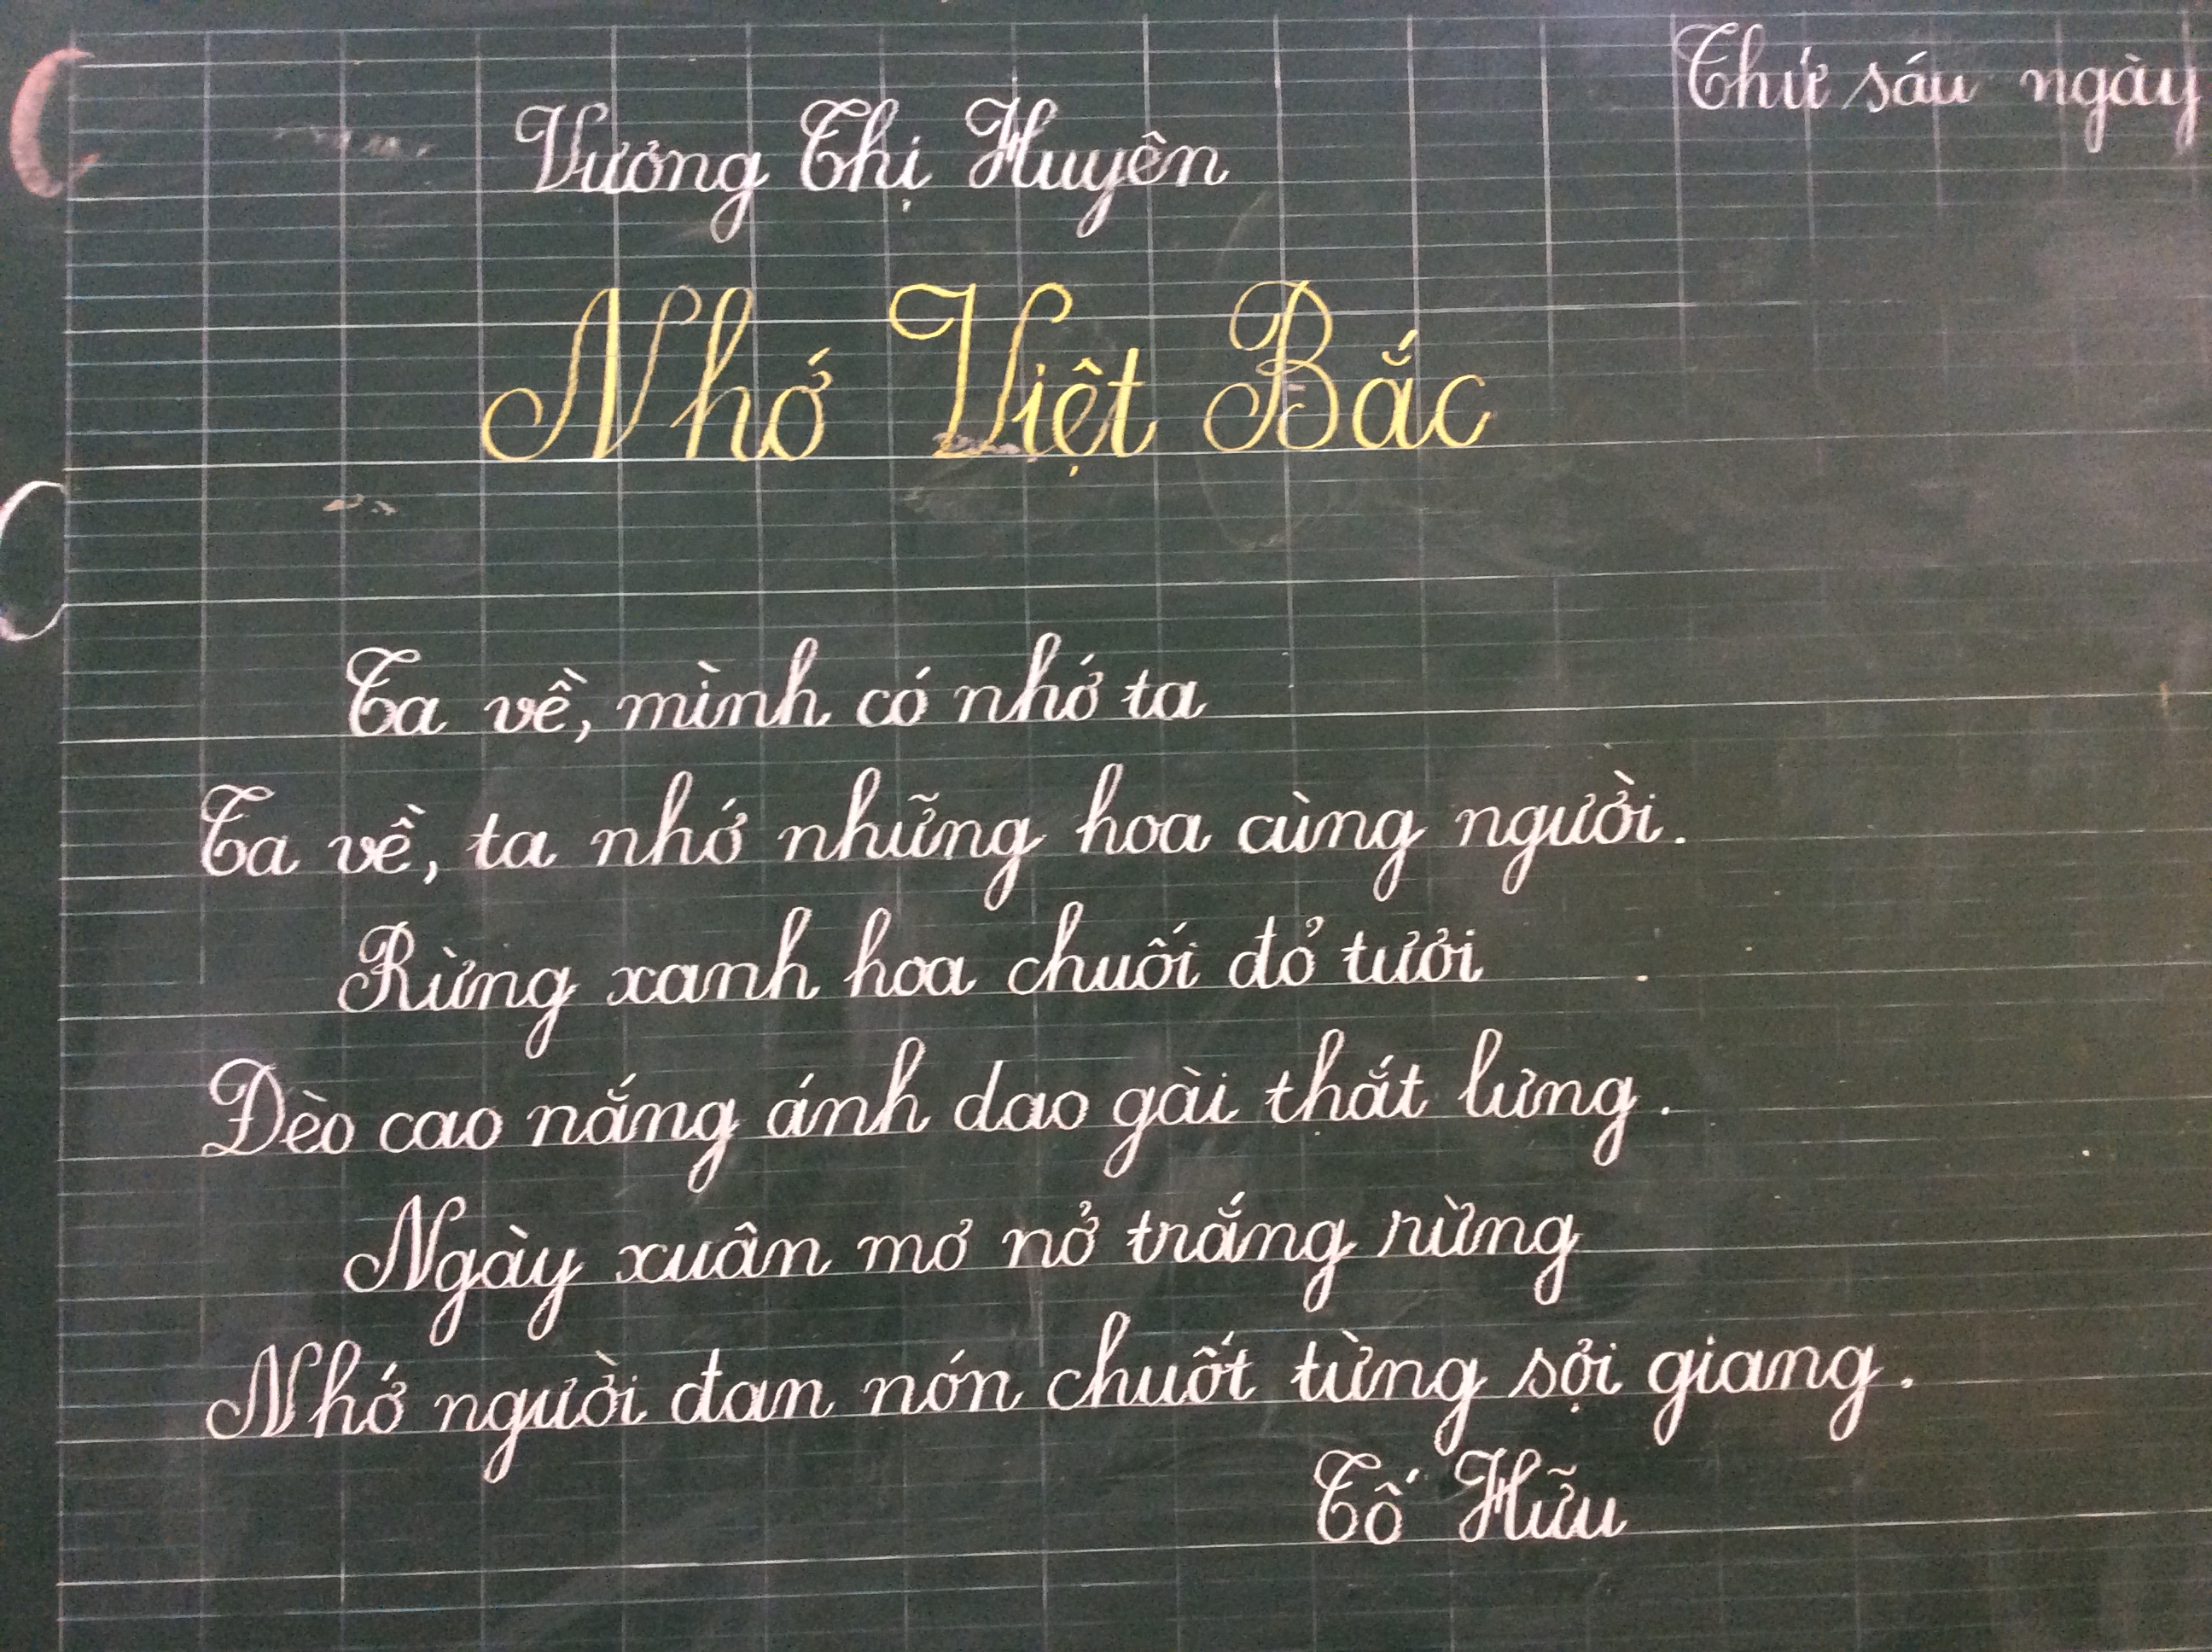 Thứ sáu ngày
Vương Thị Huyên
Nhớ Việt Bắc
Ta về, mình có nhớ ta
Ta về, ta nhớ những hoa cùng người.
Rừng xanh hoa chuối đỏ tươi
Đèo cao nắng ánh dao gài thắt lưng.
Ngày xuân mơ nở trắng rừng
Nhớ người đan nón chuốt từng sợi giang.
Tố Hữu